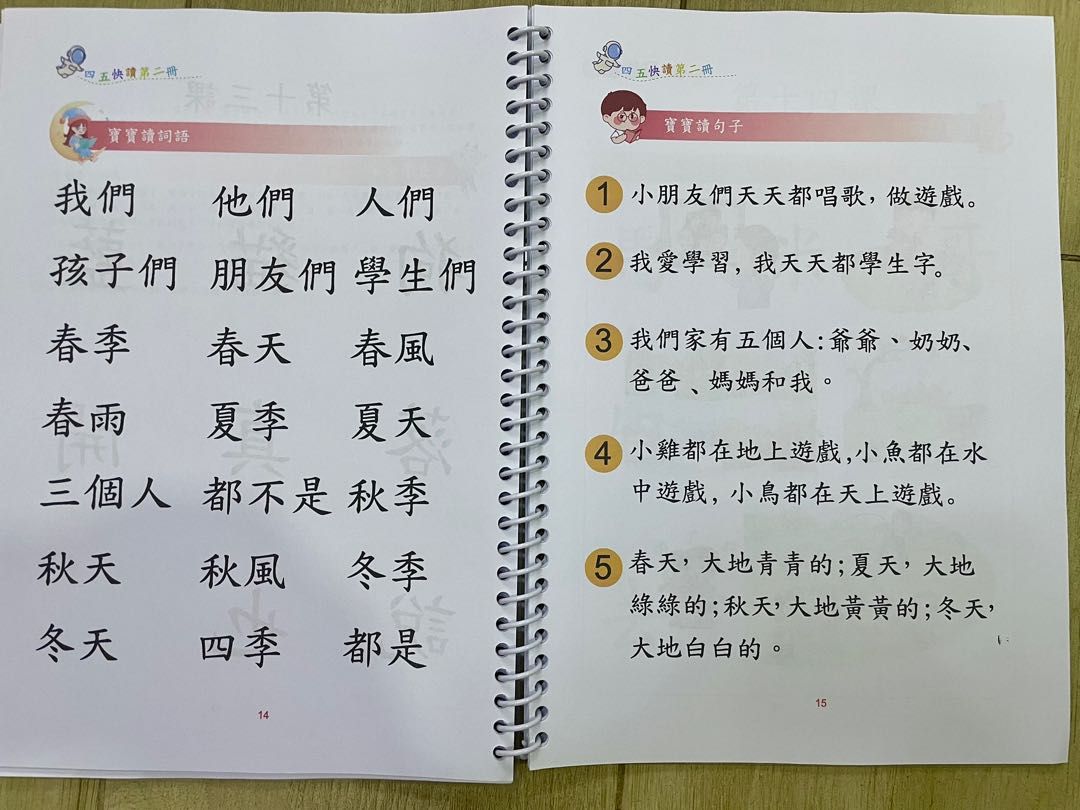 四五快讀第二冊
寶寶讀詞語
我們 他們 人們
孩子們 朋友們 學生們
春季 春天 春風
春雨 夏季 夏天
三個人 都不是 秋季
秋天 秋風 冬季
冬天 四季 都是
14
四五快讀第二冊
寶寶讀句子
1 小朋友們天天都唱歌，做遊戲。
2 我愛學習，我天天都學生字。
3 我們家有五個人：爺爺、奶奶、
爸爸、媽媽和我。
4 小雞都在地上遊戲，小魚都在水
中遊戲，小鳥都在天上遊戲。
5 春天，大地青青的；夏天，大地
綠綠的；秋天，大地黃黃的；冬天，
大地白白的。
15
第十三課